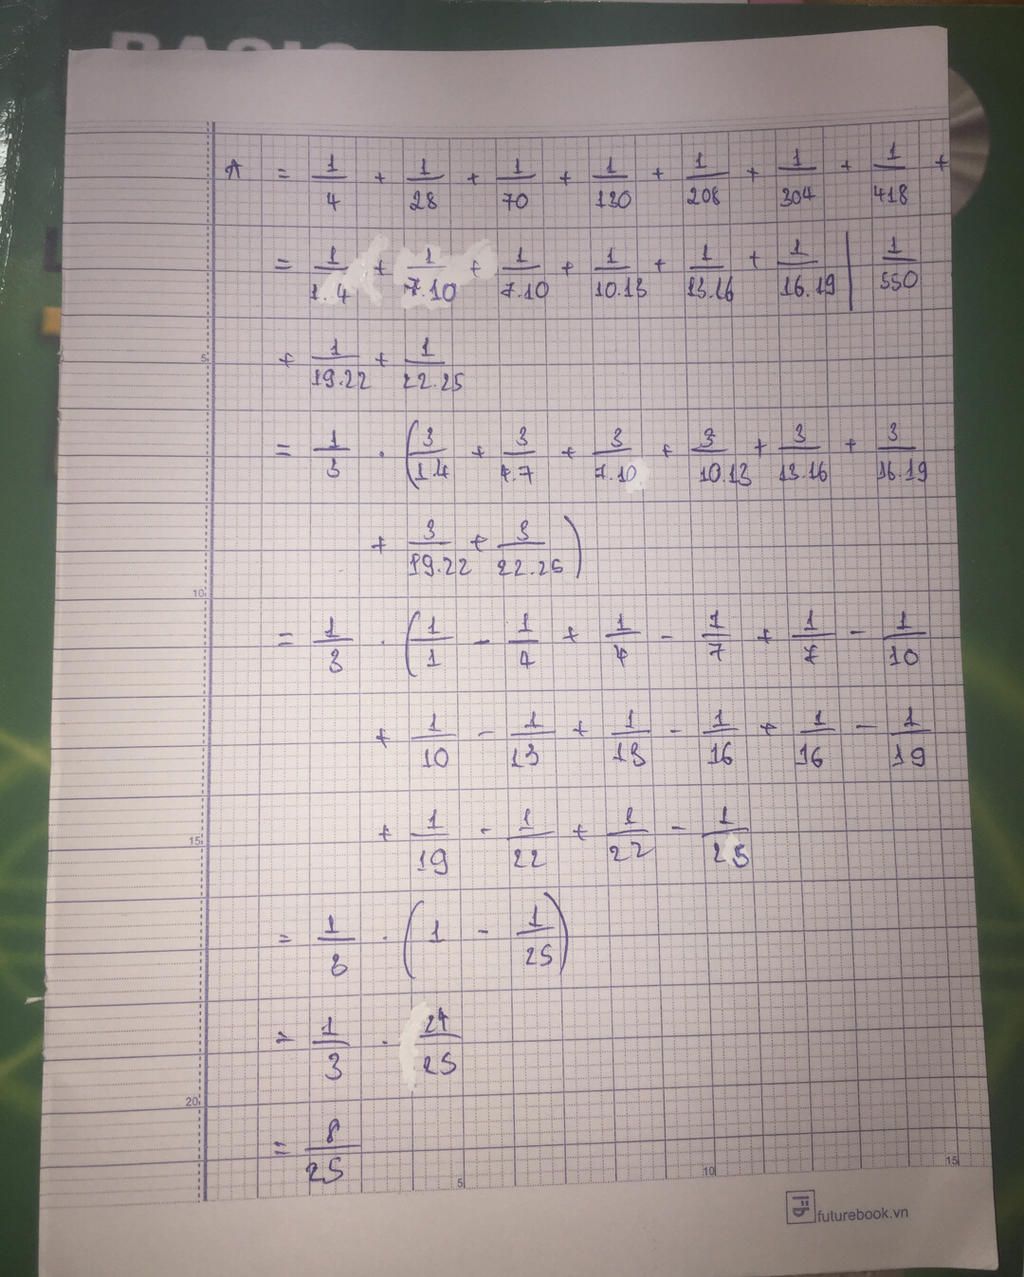 BASIC
A = 1/4 + 1/28 + 1/70 + 1/130 + 1/208 + 1/304 + 1/418 +
= 1/1.4 + 1/7.10 + 1/7.10 + 1/10.13 + 1/13.16 + 1/16.19 | 1/550
5
+ 1/19.22 + 1/22.25
= 1/3 . (3/1.4 + 3/4.7 + 3/7.10 + 3/10.13 + 3/13.16 + 3/16.19
+ 3/19.22 + 3/22.25)
10
= 1/3 . (1/1 - 1/4 + 1/4 - 1/7 + 1/7 - 1/10
+ 1/10 - 1/13 + 1/13 - 1/16 + 1/16 - 1/19
15
+ 1/19 - 1/22 + 1/22 - 1/25
= 1/3 . (1 - 1/25)
= 1/3 . 24/25
20
= 8/25
5 10 15
futurebook.vn